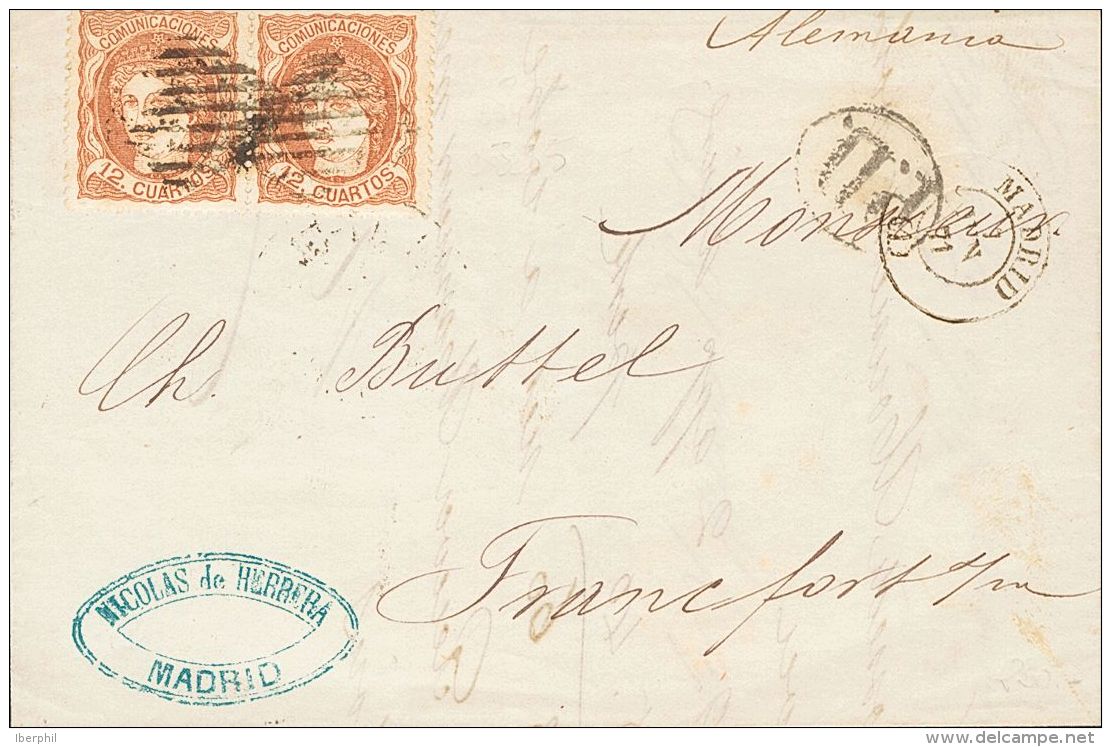 COMUNICACIONES COMUNICACIONES
12. CUARTOS 12. CUARTOS
Alemania
P.D.
MADRID
71
Monsieur
Ch. Buttel
Francfort s/m
NICOLAS de HERRERA
MADRID
Iberphil
www.delcampe.net